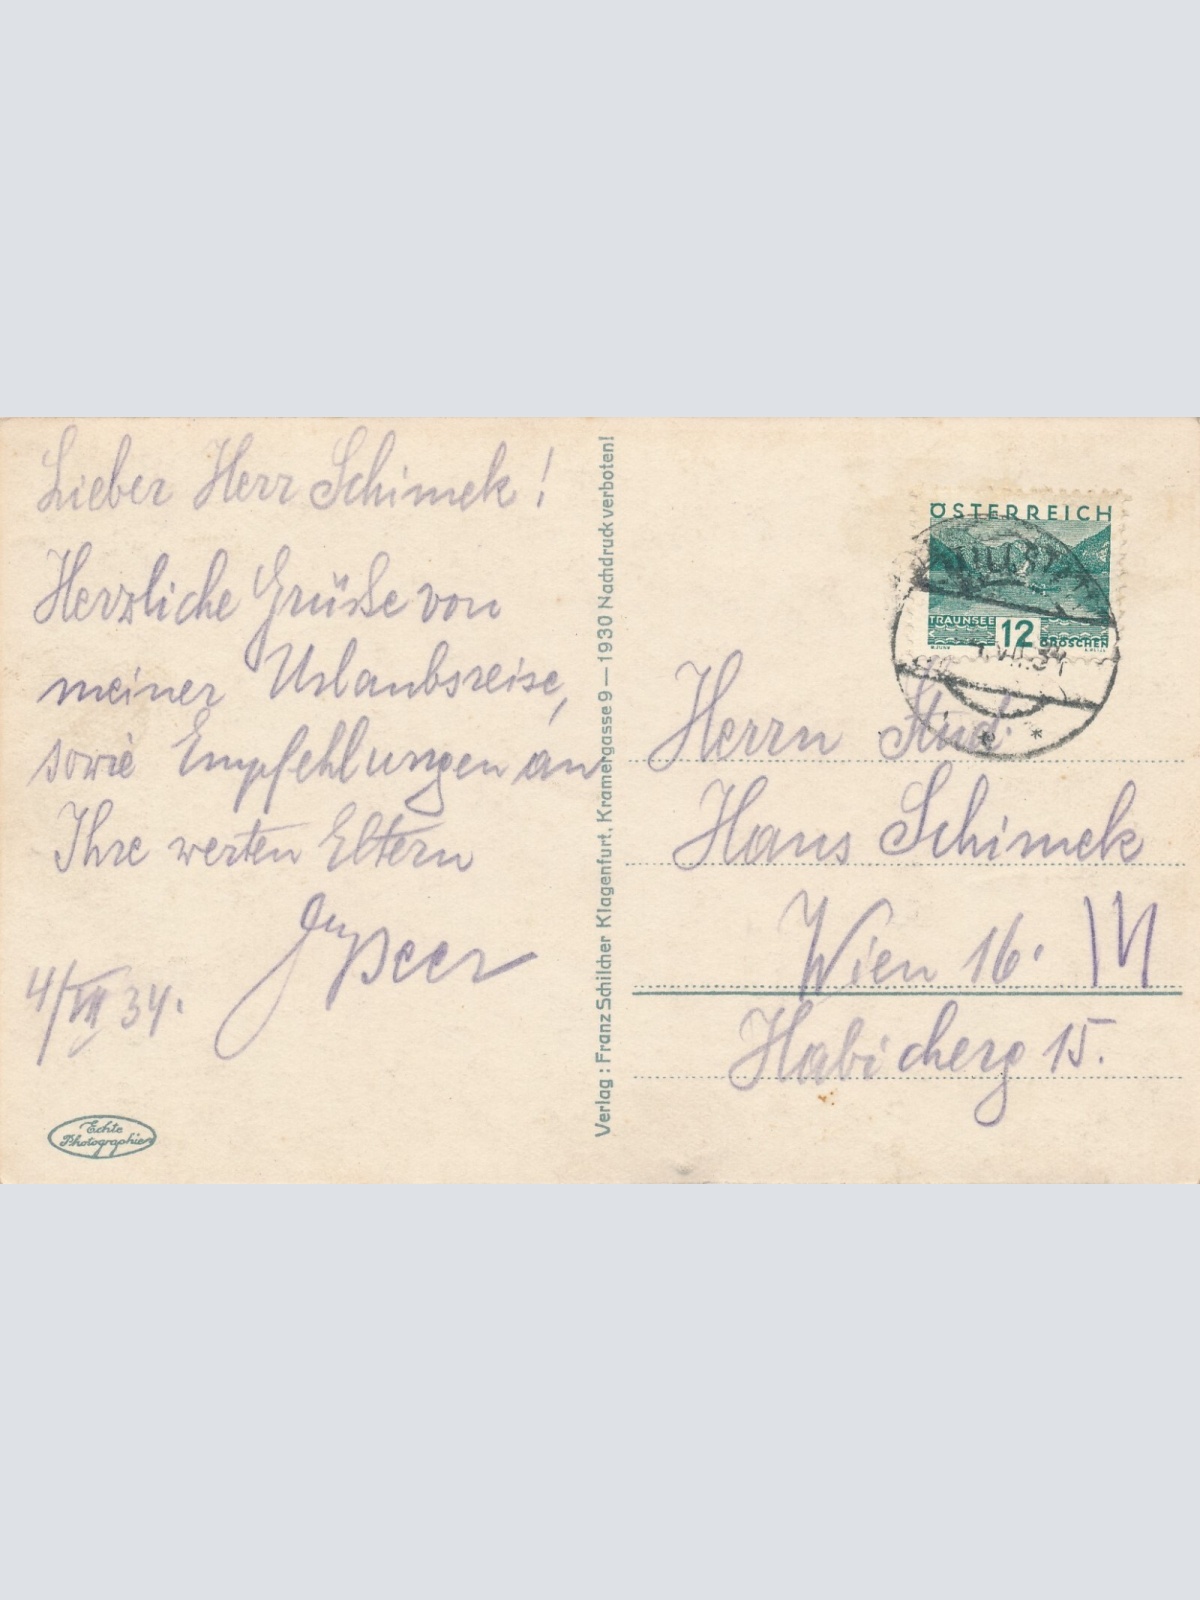 Lieber Herr Schimek!
Herzliche Grüße von
meiner Urlaubsreise,
sowie Empfehlungen an
Ihre werten Eltern
4/VII 34.
Echte
Photographie
Verlag: Franz Schilcher Klagenfurt, Kramergasse 9 — 1930 Nachdruck verboten!
ÖSTERREICH
TRAUNSEE 12 GROSCHEN
VII.34
e *
Herrn Stud.
Hans Schimek
Wien 16.
Habicherg 15.